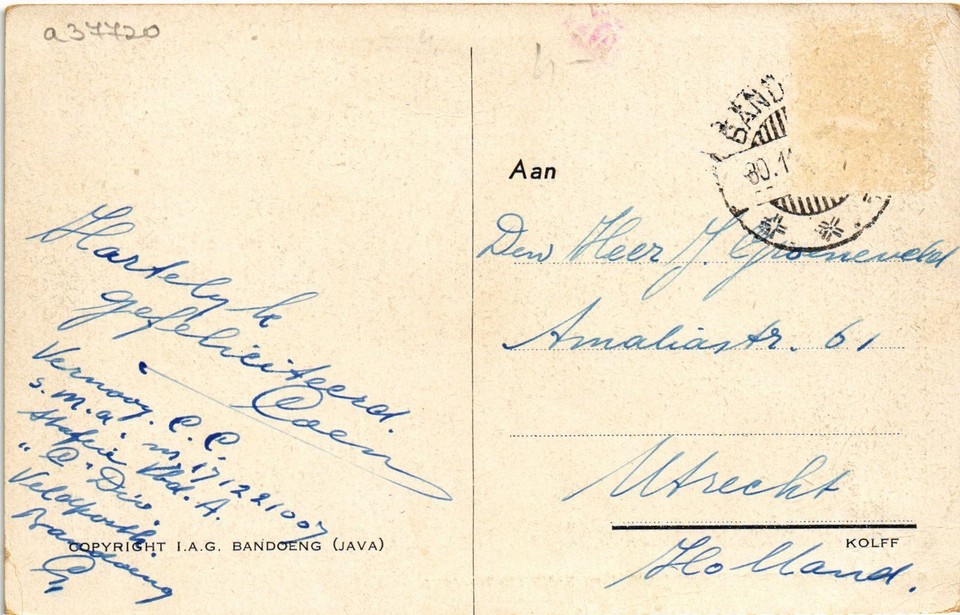 a37720
Aan
Den Heer J. Groeneveld
Amaliastr. 61
Utrecht
Holland.
Hartelyk
gefeliciteerd.
Coen
Vernooy. C. C.
s.m.a. m. 171221007
Verb. A.
"C" Div.
Veldpostk.
Bandoeng
COPYRIGHT I.A.G. BANDOENG (JAVA)
KOLFF
BAND
30.1